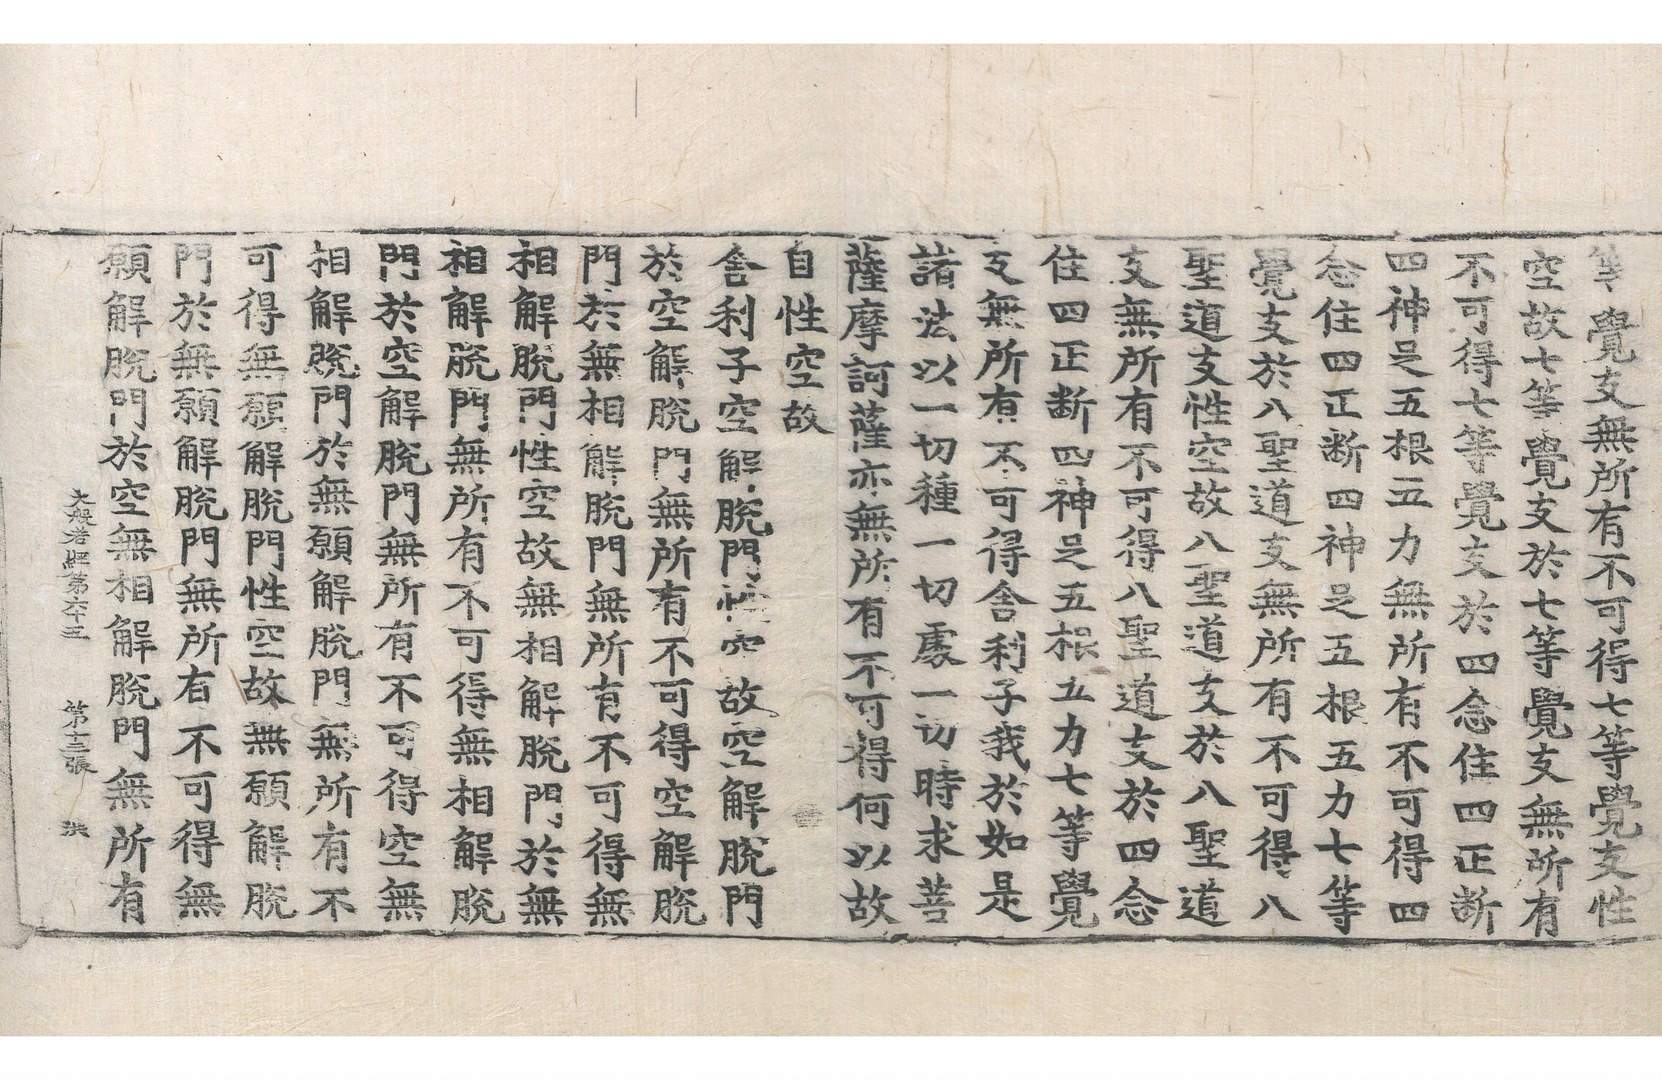 等覺支無所有不可得七等覺支性
空故七等覺支於七等覺支無所有
不可得七等覺支於四念住四正断
四神足五根五力無所有不可得四
念住四正断四神足五根五力七等
覺支於八聖道支無所有不可得八
聖道支性空故八聖道支於八聖道
支無所有不可得八聖道支於四念
住四正断四神足五根五力七等覺
支無所有不可得舍利子我於如是
諸法以一切種一切處一切時求菩
薩摩訶薩亦無所有不可得何以故
自性空故
舍利子空解脫門性空故空解脫門
於空解脫門無所有不可得空解脫
門於無相解脫門無所有不可得無
相解脫門性空故無相解脫門於無
相解脫門無所有不可得無相解脫
門於空解脫門無所有不可得空無
相解脫門於無願解脫門無所有不
可得無願解脫門性空故無願解脫
門於無願解脫門無所有不可得無
願解脫門於空無相解脫門無所有
大般若經第六十三 第十二張 洪